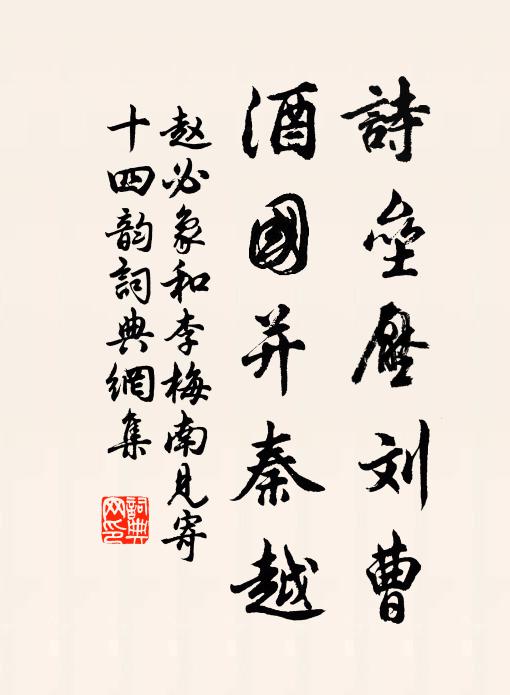 詩壘壓刘曹
酒國并秦越
赵必象和李梅南见寄
十四韵詞典網集
詞典網印